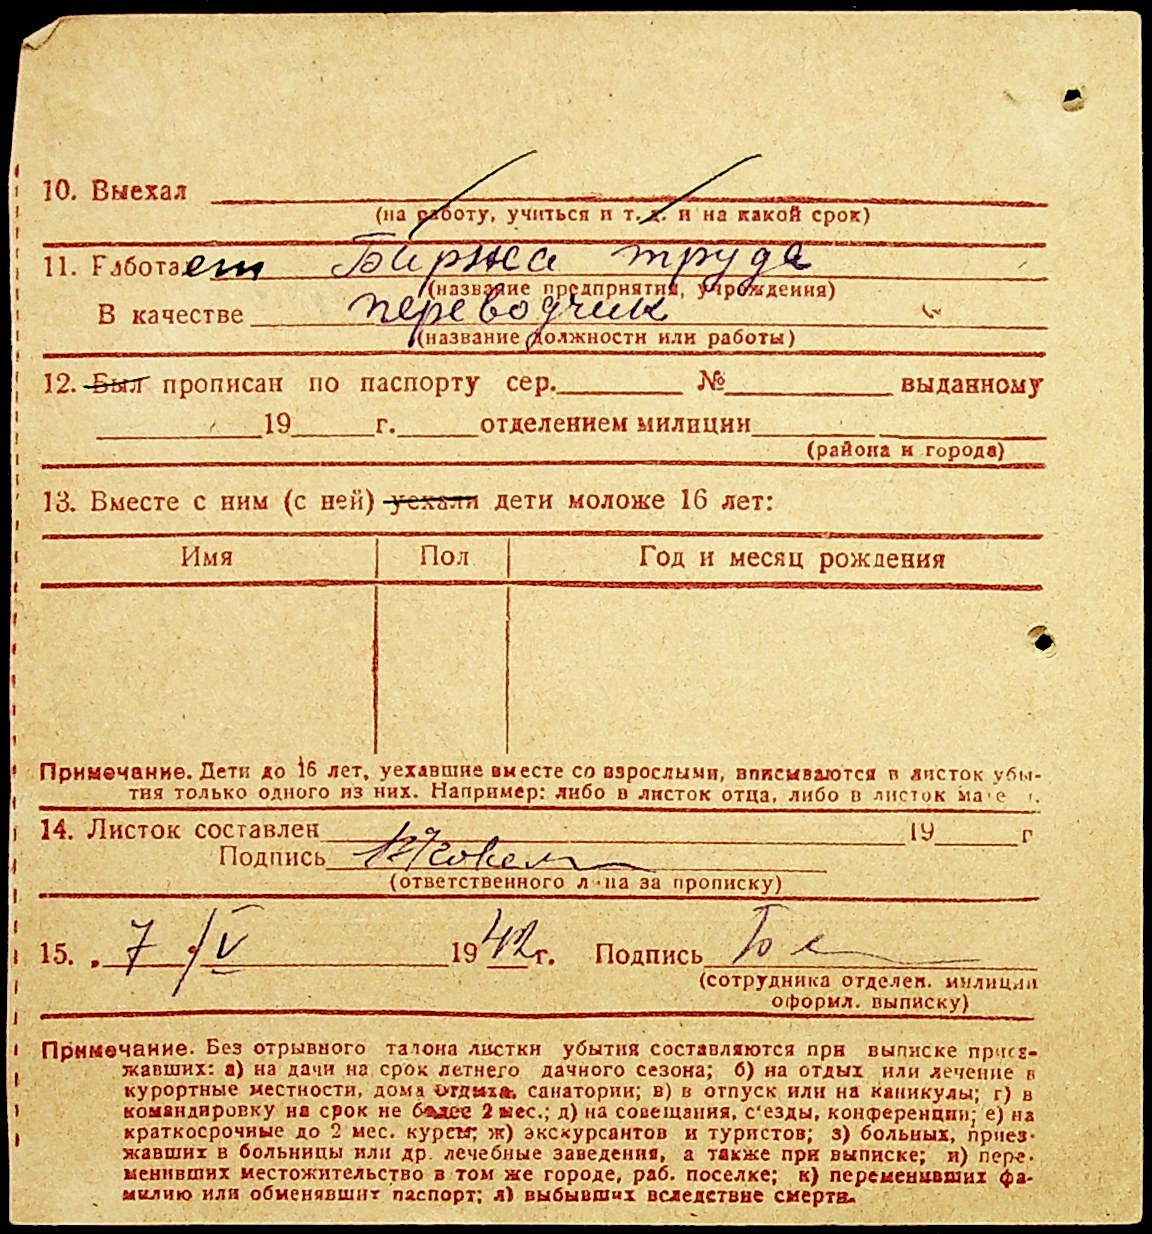 10. Выехал
(на работу, учиться и т. д. и на какой срок)
11. Работает Биржа труда
(название предприятия, учреждения)
В качестве переводчик
(название должности или работы)
12. Был прописан по паспорту сер. № выданному
19 г. отделением милиции
(района и города)
13. Вместе с ним (с ней) уехали дети моложе 16 лет:
Имя Пол Год и месяц рождения
Примечание. Дети до 16 лет, уехавшие вместе со взрослыми, вписываются в листок убы-
тия только одного из них. Например: либо в листок отца, либо в листок
14. Листок составлен 19 г
Подпись
(ответственного лица за прописку)
15. 7/V 1942 г. Подпись
(сотрудника отделен. милиции
оформл. выписку)
Примечание. Без отрывного талона листки убытия составляются при выписке приез-
жавших: а) на дачи на срок летнего дачного сезона; б) на отдых или лечение в
курортные местности, дома отдыха, санатории; в) в отпуск или на каникулы; г) в
командировку на срок не более 2 мес.; д) на совещания, с'езды, конференции; е) на
краткосрочные до 2 мес. курсы; ж) экскурсантов и туристов; з) больных, приез-
жавших в больницы или др. лечебные заведения, а также при выписке; и) пере-
менивших местожительство в том же городе, раб. поселке; к) переменивших фа-
милию или обменявших паспорт; л) выбывших вследствие смерти.